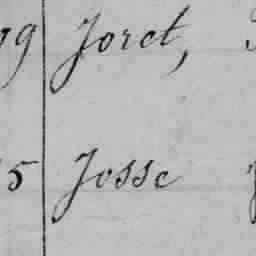 99 Joret,
5 Josse